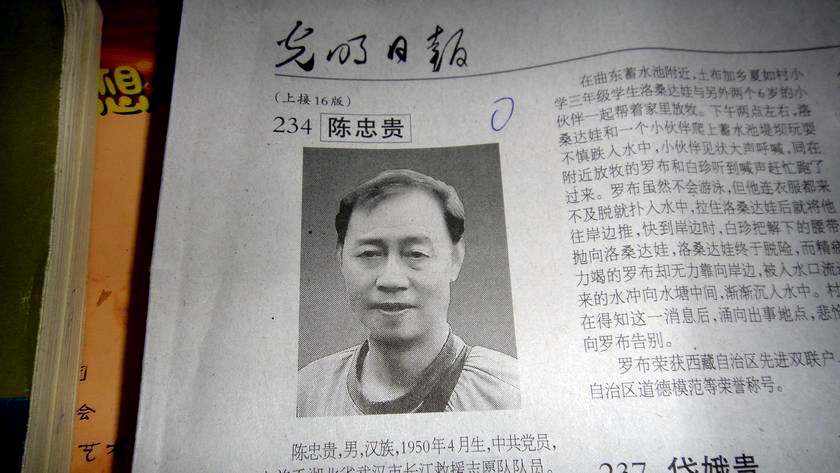 光明日报
(上接16版)
234 陈忠贵
陈忠贵,男,汉族,1950年4月生,中共党员,
湖北省武汉市长江救援志愿队队员。
在曲东蓄水池附近,土布加乡夏如村小
学三年级学生洛桑达娃与另外两个6岁的小
伙伴一起帮着家里放牧。下午两点左右,洛
桑达娃和一个小伙伴爬上蓄水池堤坝玩耍
不慎跌入水中,小伙伴见状大声呼喊,同在
附近放牧的罗布和白珍听到喊声赶忙跑了
过来。罗布虽然不会游泳,但他连衣服都来
不及脱就扑入水中,拉住洛桑达娃后就将他
往岸边推,快到岸边时,白珍把解下的腰带
抛向洛桑达娃,洛桑达娃终于脱险,而精
力竭的罗布却无力靠向岸边,被入水口流
来的水冲向水塘中间,渐渐沉入水中。村
在得知这一消息后,涌向出事地点,悲
向罗布告别。
罗布荣获西藏自治区先进双联户
自治区道德模范等荣誉称号。
237 岱娥贵
想
会
艺术